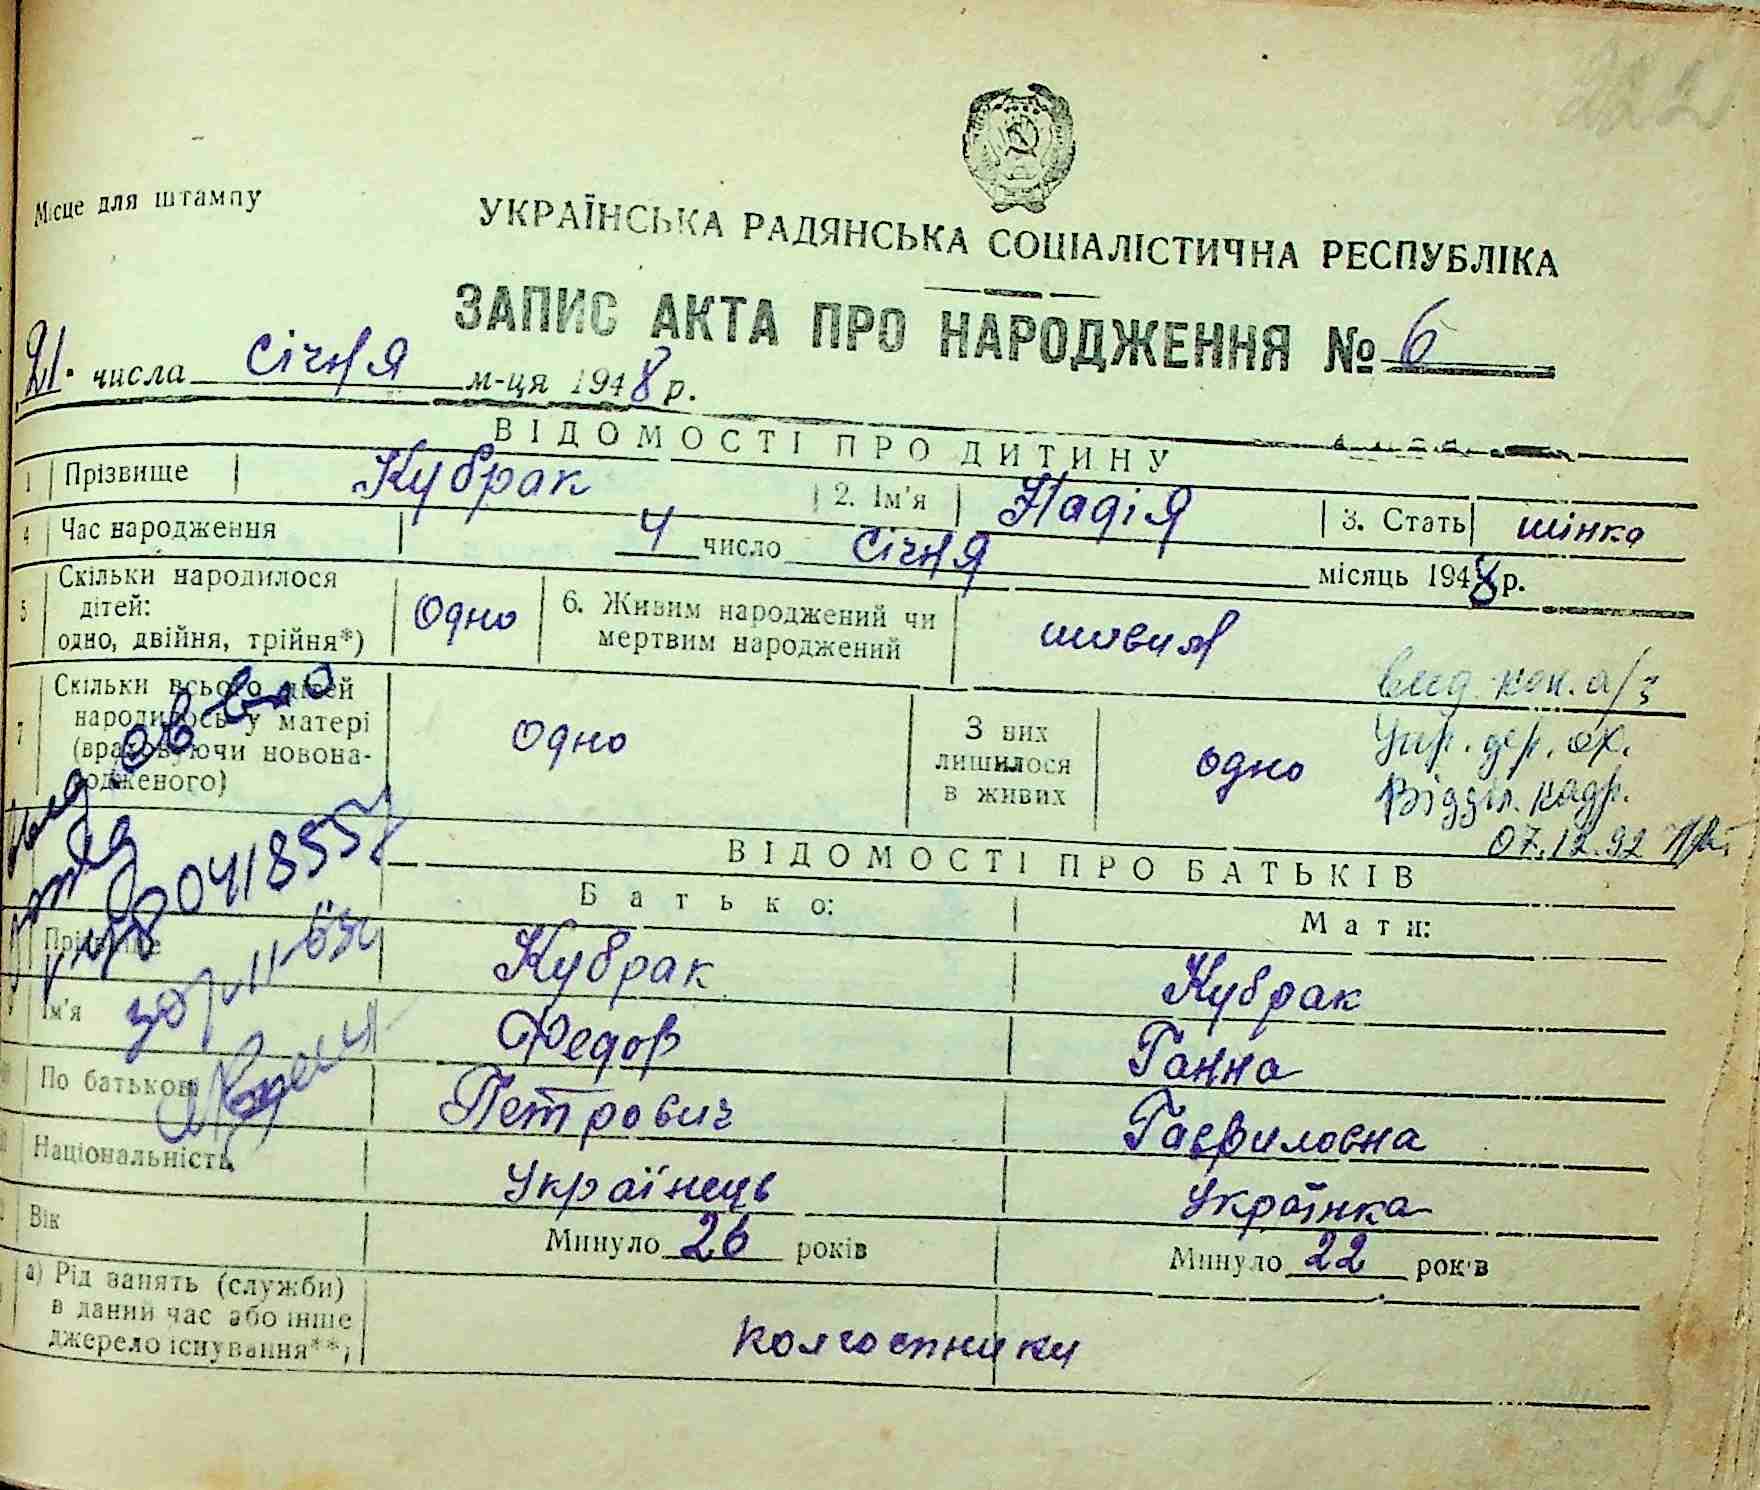 222
Місце для штампу
УКРАЇНСЬКА РАДЯНСЬКА СОЦІАЛІСТИЧНА РЕСПУБЛІКА
ЗАПИС АКТА ПРО НАРОДЖЕННЯ № 6
21. числа січня м-ця 1948 р.
ВІДОМОСТІ ПРО ДИТИНУ
1 Прізвище Кубрак 2. Ім'я Надія 3. Стать жінка
4 Час народження 4 число січня місяць 1948 р.
5 Скільки народилося дітей: одно, двійня, трійня*) одно 6. Живим народжений чи мертвим народжений живим
7 Скільки всього дітей народилось у матері (враховуючи новонародженого) одно З них лишилося в живих одно
вид. коп. а/з
Упр. дер. ох.
Відділ. кадр.
07.12.92
0418557
30/II-63
ВІДОМОСТІ ПРО БАТЬКІВ
Батько: Мати:
Прізвище Кубрак Кубрак
Ім'я Федор Ганна
По батькові Петрович Гавриловна
Національність Українець Українка
Вік Минуло 26 років Минуло 22 років
а) Рід занять (служби) в даний час або інше джерело існування**) колгоспники